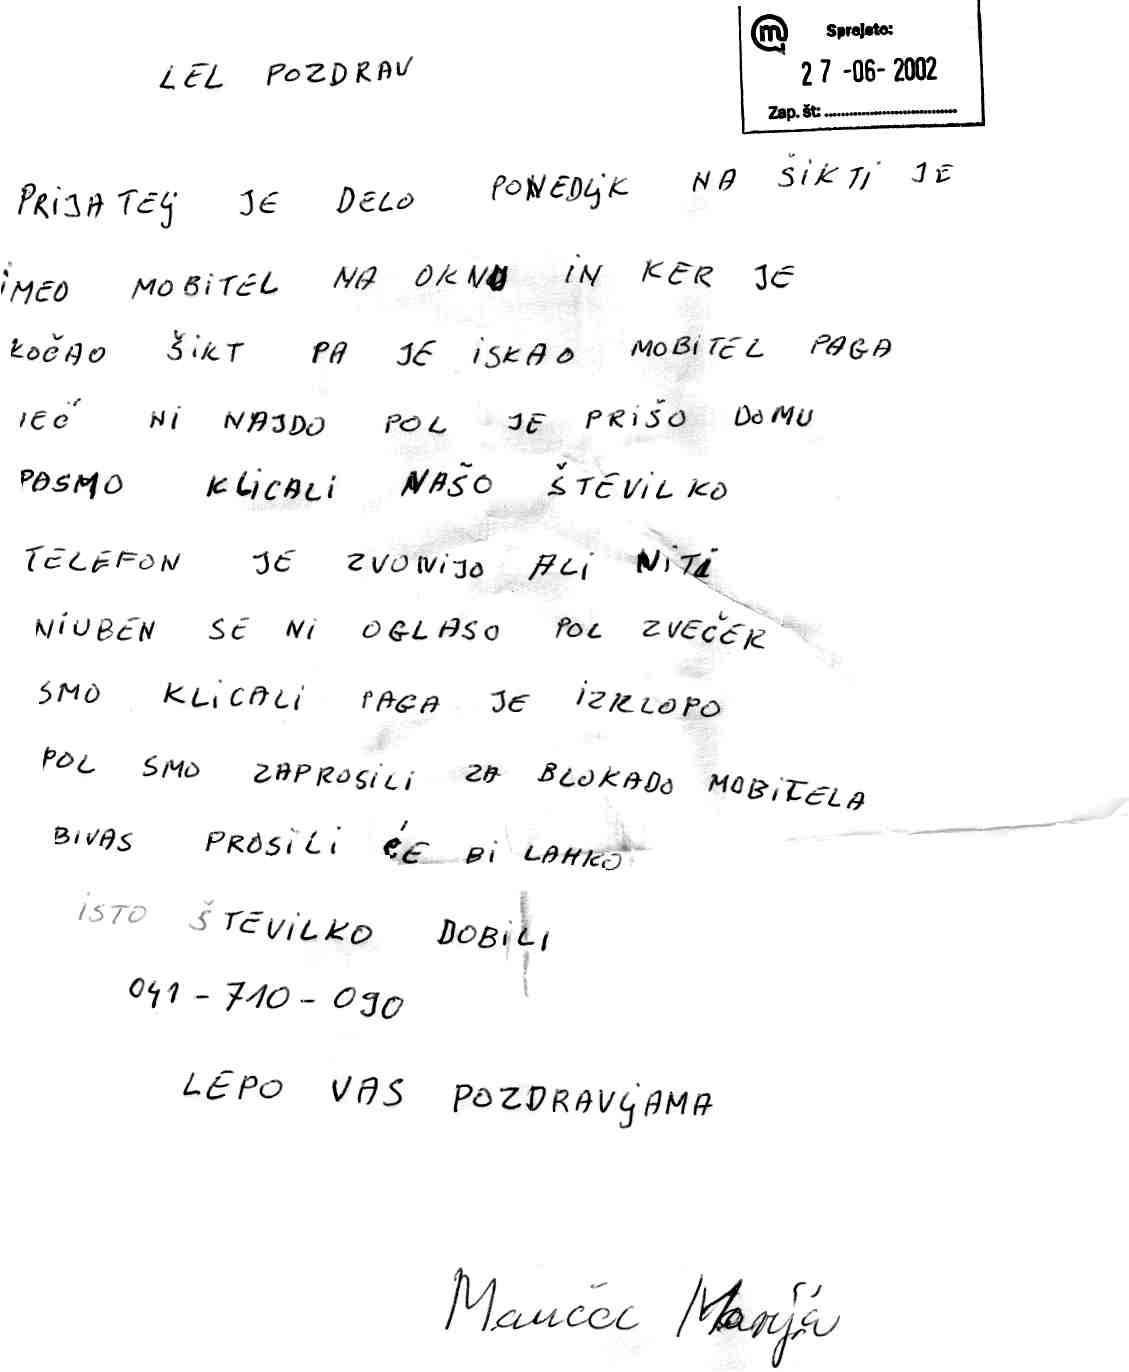 Sprejeto:
27-06-2002
Zap. št:
LEL POZDRAV
PRIJATELJ JE DELO PONEDLJK NA ŠIKTI JE
IMEO MOBITEL NA OKNU IN KER JE
KOČAO ŠIKT PA JE ISKAO MOBITEL PAGA
IEČ NI NAJDO POL JE PRIŠO DOMU
PASMO KLICALI NAŠO ŠTEVILKO
TELEFON JE ZVONIJO ALI NITI
NIUBEN SE NI OGLASO POL ZVEČER
SMO KLICALI PAGA JE IZKLOPO
POL SMO ZAPROSILI ZA BLOKADO MOBITELA
BIVAS PROSILI ĆE BI LAHKO
ISTO ŠTEVILKO DOBILI
041-710-090
LEPO VAS POZDRAVLJAMA
Marija